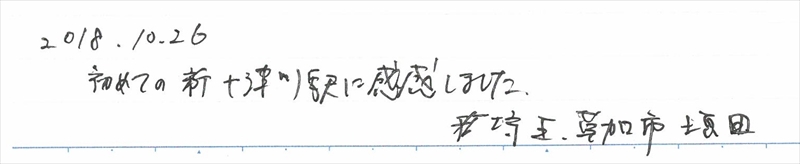 2018.10.26
初めての新十津川駅に感感しました.
埼玉.草加市 塩田